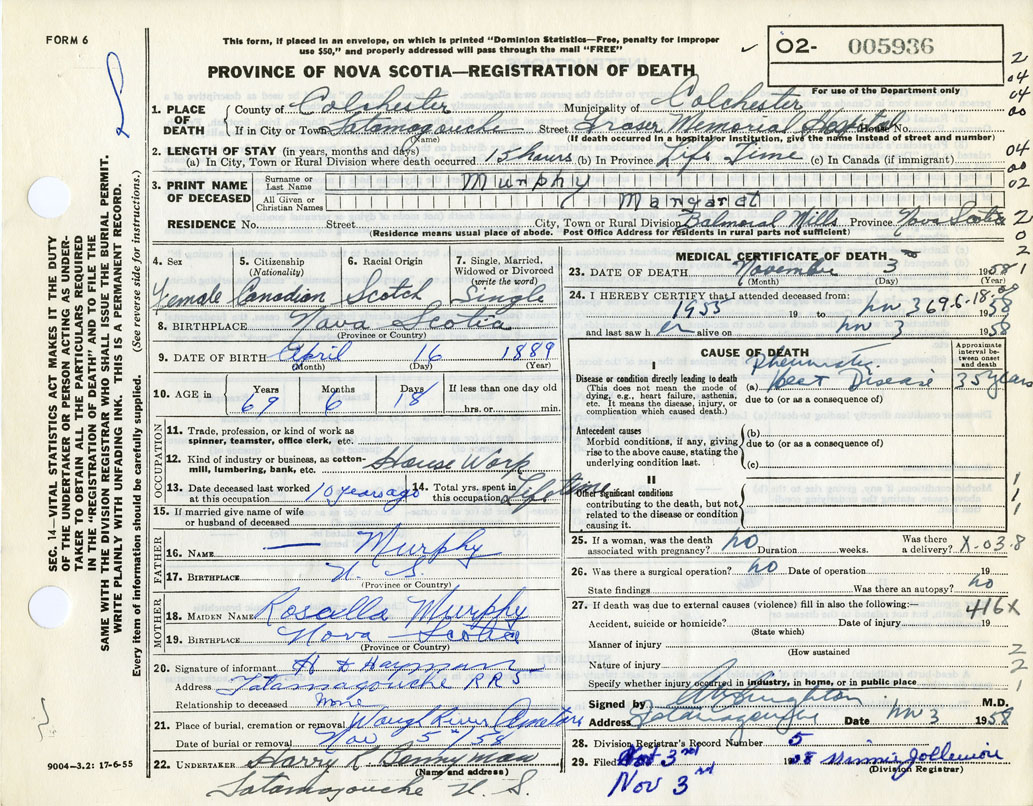 FORM 6
This form, if placed in an envelope, on which is printed "Dominion Statistics—Free, penalty for improper
use $50," and properly addressed will pass through the mail "FREE"
O2- 005936
PROVINCE OF NOVA SCOTIA—REGISTRATION OF DEATH
For use of the Department only
1. PLACE OF DEATH County of Colchester Municipality of Colchester
If in City or Town Tatamagouche Street Fraser Memorial Hospital House No.
(Name) (If death occurred in a hospital or institution, give the name instead of street and number)
2. LENGTH OF STAY (in years, months and days)
(a) In City, Town or Rural Division where death occurred 15 hours (b) In Province Life Time (c) In Canada (if immigrant)
3. PRINT NAME OF DECEASED Surname or Last Name Murphy
All Given or Christian Names Margaret
RESIDENCE No. Street City, Town or Rural Division Balmoral Mills Province Nova Scotia
(Residence means usual place of abode. Post Office Address for residents in rural parts not sufficient)
4. Sex Female
5. Citizenship (Nationality) Canadian
6. Racial Origin Scotch
7. Single, Married, Widowed or Divorced (write the word) Single
8. BIRTHPLACE Nova Scotia
(Province or Country)
9. DATE OF BIRTH April 16 1889
(Month) (Day) (Year)
10. AGE in Years 69 Months 6 Days 18 If less than one day old
hrs. or min.
OCCUPATION
11. Trade, profession, or kind of work as
spinner, teamster, office clerk, etc.
12. Kind of industry or business, as cotton-
mill, lumbering, bank, etc. House Work
13. Date deceased last worked at this occupation 10 years ago 14. Total yrs. spent in this occupation Life time
15. If married give name of wife
or husband of deceased
FATHER
16. NAME — Murphy
17. BIRTHPLACE N. S.
(Province or Country)
MOTHER
18. MAIDEN NAME Rosealla Murphy
19. BIRTHPLACE Nova Scotia
(Province or Country)
20. Signature of informant
Address Tatamagouche RR 5
Relationship to deceased none
21. Place of burial, cremation or removal Waugh River
Date of burial or removal Nov 5 / 58
22. UNDERTAKER Harry R Bonnyman
(Name and address)
Tatamagouche N. S.
MEDICAL CERTIFICATE OF DEATH
23. DATE OF DEATH November 3 1958
(Month) (Day)
24. I HEREBY CERTIFY that I attended deceased from:
1955 19 to Nov 3 1958
369.6.18.
and last saw her alive on Nov 3 1958
CAUSE OF DEATH
Approximate interval between onset and death
I
Disease or condition directly leading to death
(This does not mean the mode of
dying, e.g., heart failure, asthenia,
etc. It means the disease, injury, or
complication which caused death.)
(a) Rheumatic
Heart Disease 35 years
due to (or as a consequence of)
Antecedent causes
Morbid conditions, if any, giving
rise to the above cause, stating the
underlying condition last.
(b)
due to (or as a consequence of)
(c)
II
Other significant conditions
contributing to the death, but not
related to the disease or condition
causing it.
25. If a woman, was the death
associated with pregnancy? no Duration weeks. Was there a delivery? X-03.8
26. Was there a surgical operation? no Date of operation 19
State findings Was there an autopsy? no
27. If death was due to external causes (violence) fill in also the following:— 416X
Accident, suicide or homicide? Date of injury 19
(State which)
Manner of injury
(How sustained
Nature of injury
Specify whether injury occurred in industry, in home, or in public place
Signed by M.D.
Address Tatamagouche Date Nov 3 1958
28. Division Registrar's Record Number 5
29. Filed Nov 3rd 1958
(Division Registrar)
Nov 3rd
SEC. 14—VITAL STATISTICS ACT MAKES IT THE DUTY
OF THE UNDERTAKER OR PERSON ACTING AS UNDER-
TAKER TO OBTAIN ALL THE PARTICULARS REQUIRED
IN THE "REGISTRATION OF DEATH" AND TO FILE THE
SAME WITH THE DIVISION REGISTRAR WHO SHALL ISSUE THE BURIAL PERMIT.
WRITE PLAINLY WITH UNFADING INK. THIS IS A PERMANENT RECORD.
Every item of information should be carefully supplied. (See reverse side for instructions.)
9004—3.2: 17-6-55
2
04
04
00
04
00
02
2
0
2
1
1
1
1
2
2
1